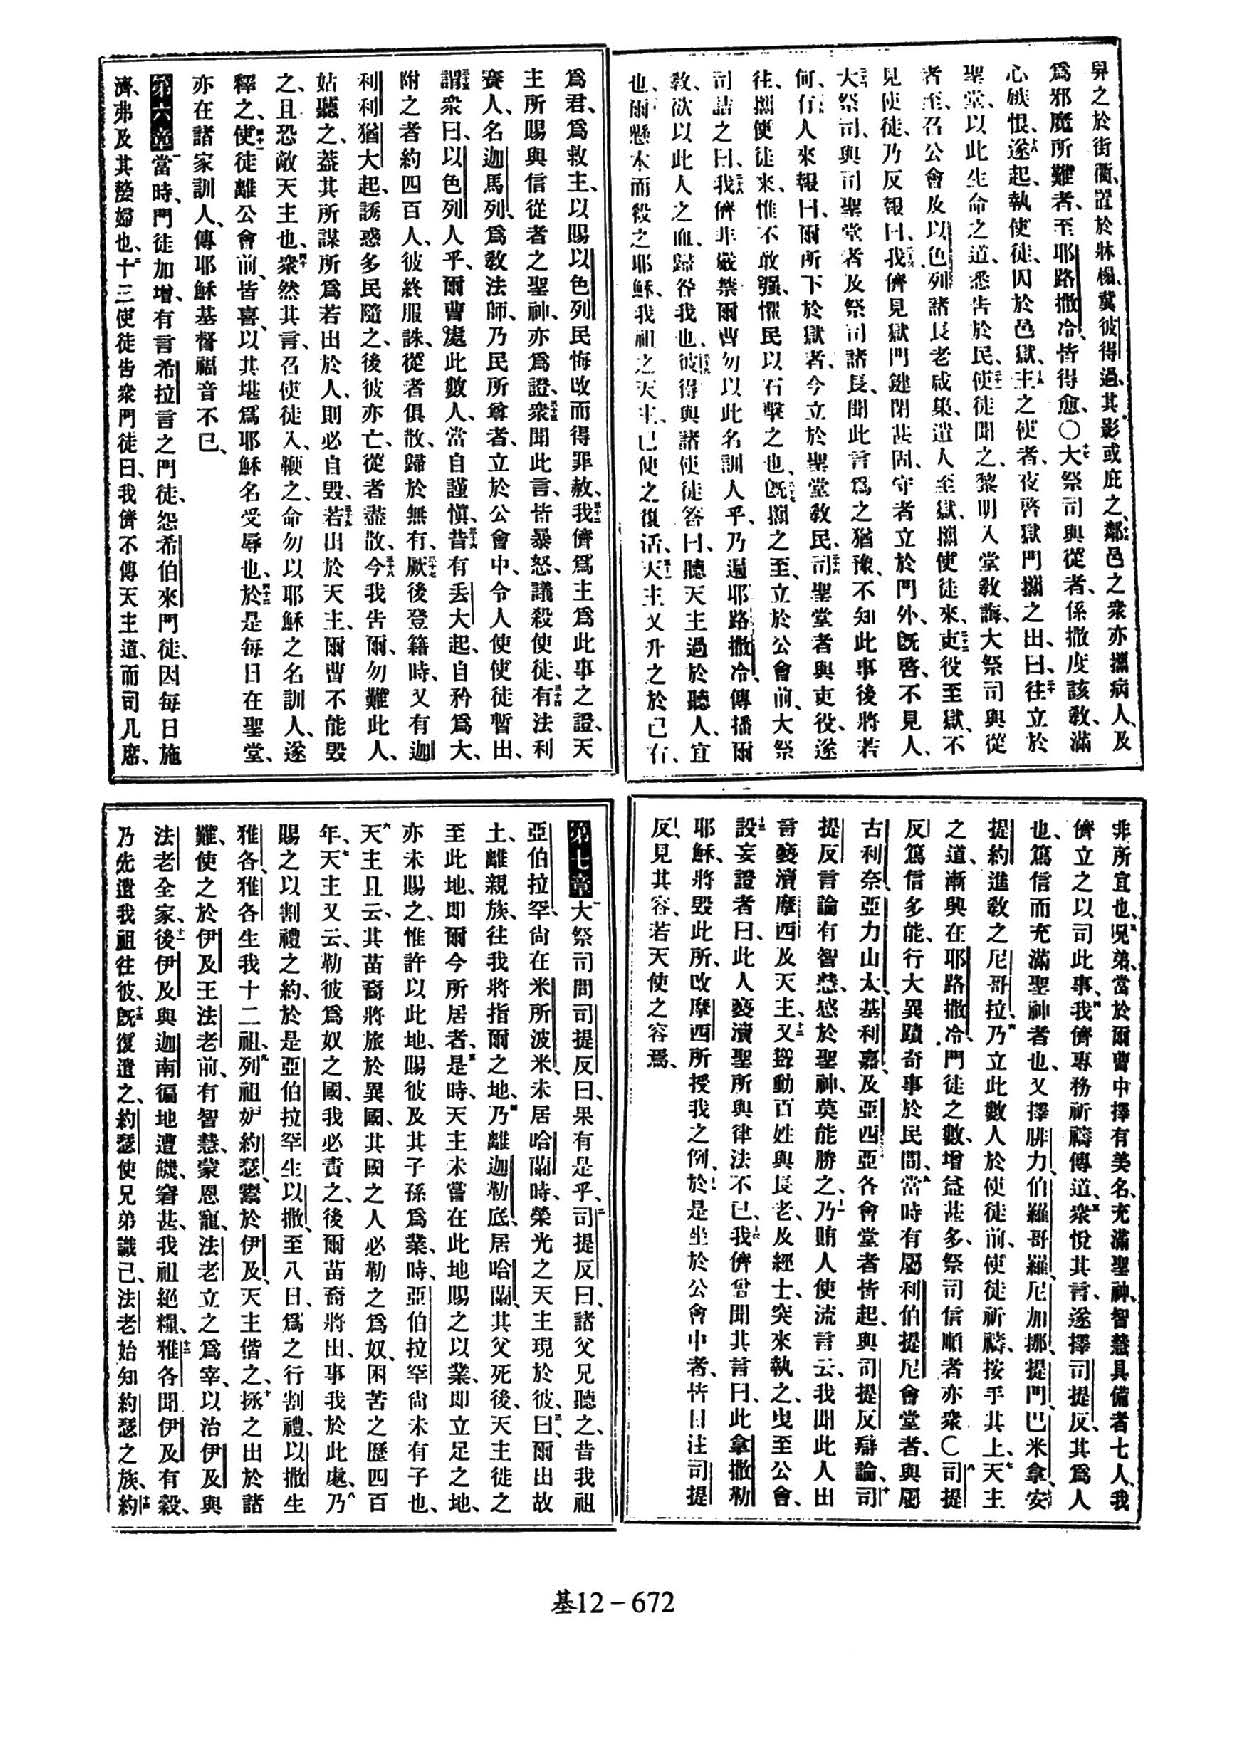 舁之於街衢、置於牀榻、冀彼得過、其影或庇之、鄰邑之衆、亦攜病人、及
爲邪魔所難者、至耶路撒冷、皆得愈、〇大祭司與從者、係撒度該敎、滿
心嫉恨、遂起執使徒、囚於邑獄、主之使者、夜啓獄門、攜之出、曰、往立於
聖堂、以此生命之道、悉告於民、使徒聞之、黎明入堂敎誨、大祭司與從
者至、召公會及以色列諸長老咸集、遣人至獄、攜使徒來、吏役至獄、不
見使徒、乃反報曰、我儕見獄門鍵閉甚固、守者立於門外、旣啓、不見人、
大祭司、與司聖堂者及祭司諸長、聞此言爲之猶豫、不知此事後將若
何、有人來報曰、爾所下於獄者、今立於聖堂敎民、司聖堂者與吏役、遂
往、攜使徒來、惟不敢强、懼民以石擊之也、旣攜之至、立於公會前、大祭
司詰之曰、我儕非嚴禁爾曹勿以此名訓人乎、乃遍耶路撒冷傳播爾
敎、欲以此人之血、歸咎我也、彼得與諸使徒答曰、聽天主過於聽人、宜
也、爾懸木而殺之耶穌、我祖之天主、已使之復活、天主又升之於己右、
爲君、爲救主、以賜以色列民悔改而得罪赦、我儕爲主爲此事之證、天
主所賜與信從者之聖神、亦爲證、衆聞此言、皆暴怒、議殺使徒、有法利
賽人、名迦馬列、爲敎法師、乃民所尊者、立於公會中、令人使使徒暫出、
謂衆曰、以色列人乎、爾曹處此數人、當自謹愼、昔有丟大起、自矜爲大、
附之者約四百人、彼終服誅、從者俱散、歸於無有、厥後登籍時、又有迦
利利猶大起、誘惑多民隨之、後彼亦亡、從者盡散、今我吿爾、勿難此人、
姑聽之、蓋其所謀所爲、若出於人、則必自毀、若出於天主、爾曹不能毀
之、且恐敵天主也、衆然其言、召使徒入、鞭之、命勿以耶穌之名訓人、遂
釋之、使徒離公會前、皆喜、以其堪爲耶穌名受辱也、於是每日在聖堂、
亦在諸家訓人、傳耶穌基督福音不已、
第六章 當時、門徒加增、有言希拉言之門徒、怨希伯來門徒、因每日施
濟、弗及其嫠婦也、十二使徒吿衆門徒曰、我儕不傳天主道、而司几席、
非所宜也、兄弟當於爾曹中、擇有美名、充滿聖神、智慧具備者七人、我
儕立之以司此事、我儕專務祈禱傳道、衆悅其言、遂擇司提反、其爲人
也、篤信而充滿聖神者也、又擇腓力、伯羅哥羅、尼加挪、提門、巴米拿、安
提約進敎之尼哥拉、乃立此數人於使徒前、使徒祈禱、按手其上、天主
之道漸興、在耶路撒冷、門徒之數、增益甚多、祭司信順者亦衆、〇司提
反篤信多能、行大異蹟奇事於民間、當時有屬利伯提尼會堂者、與屬
古利奈、亞力山太、基利嘉、及亞西亞各會堂者皆起、與司提反辯論、司
提反言論有智慧、感於聖神、莫能勝之、乃賄人使流言云、我聞此人出
言褻瀆摩西及天主、又聳動百姓與長老、及經士、突來執之、曳至公會、
設妄證者曰、此人褻瀆聖所與律法不已、我儕曾聞其言曰、此拿撒勒
耶穌、將毀此所、改摩西所授我之例、於是坐於公會中者、皆目注司提
反、見其容、若天使之容焉、
第七章 大祭司問司提反曰、果有是乎、司提反曰、諸父兄聽之、昔我祖
亞伯拉罕、尙在米所波米、未居哈蘭時、榮光之天主現於彼、曰、爾出故
土、離親族、往我將指爾之地、乃離迦勒底、居哈蘭、其父死後、天主徙之
至此地、卽爾今所居者、是時、天主未嘗在此地賜之以業、卽立足之地、
亦未賜之、惟許以此地、賜彼及其子孫爲業、時亞伯拉罕尙未有子也、
天主且云、其苗裔將旅於異國、其國之人必勒之爲奴、困苦之、歷四百
年、天主又云、勒彼爲奴之國、我必責之、後爾苗裔將出、事我於此處、乃
賜之以割禮之約、於是亞伯拉罕生以撒、至八日、爲之行割禮、以撒生
雅各、雅各生我十二祖、列祖妒約瑟、鬻於伊及、天主偕之、拯之出於諸
難、使之於伊及王法老前、有智慧、蒙恩寵、法老立之爲宰、以治伊及與
法老全家、後伊及與迦南徧地遭饑、窘甚、我祖絕糧、雅各聞伊及有穀、
乃先遣我祖往彼、旣復遣之、約瑟使兄弟識己、法老始知約瑟之族、約
基12－672